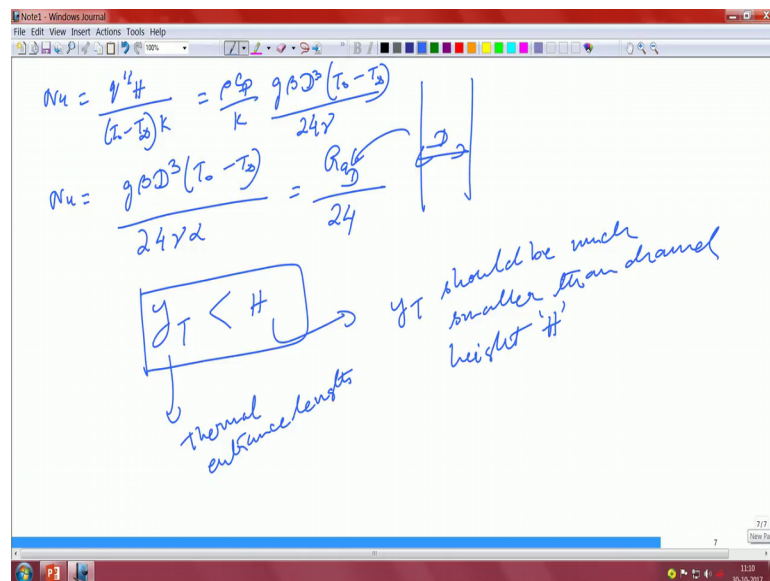 Note1 - Windows Journal
File Edit View Insert Actions Tools Help
100%
Nu = q''H / (T₀-T∞)k = ρCp/k gβD³(T₀-T∞) / 24ν
D
Nu = gβD³(T₀-T∞) / 24να = Ra_D / 24
y_T < H
y_T should be much
smaller than channel
height 'H'
thermal
entrance lengths
7/7
7
New Pa
11:10
30-10-2017